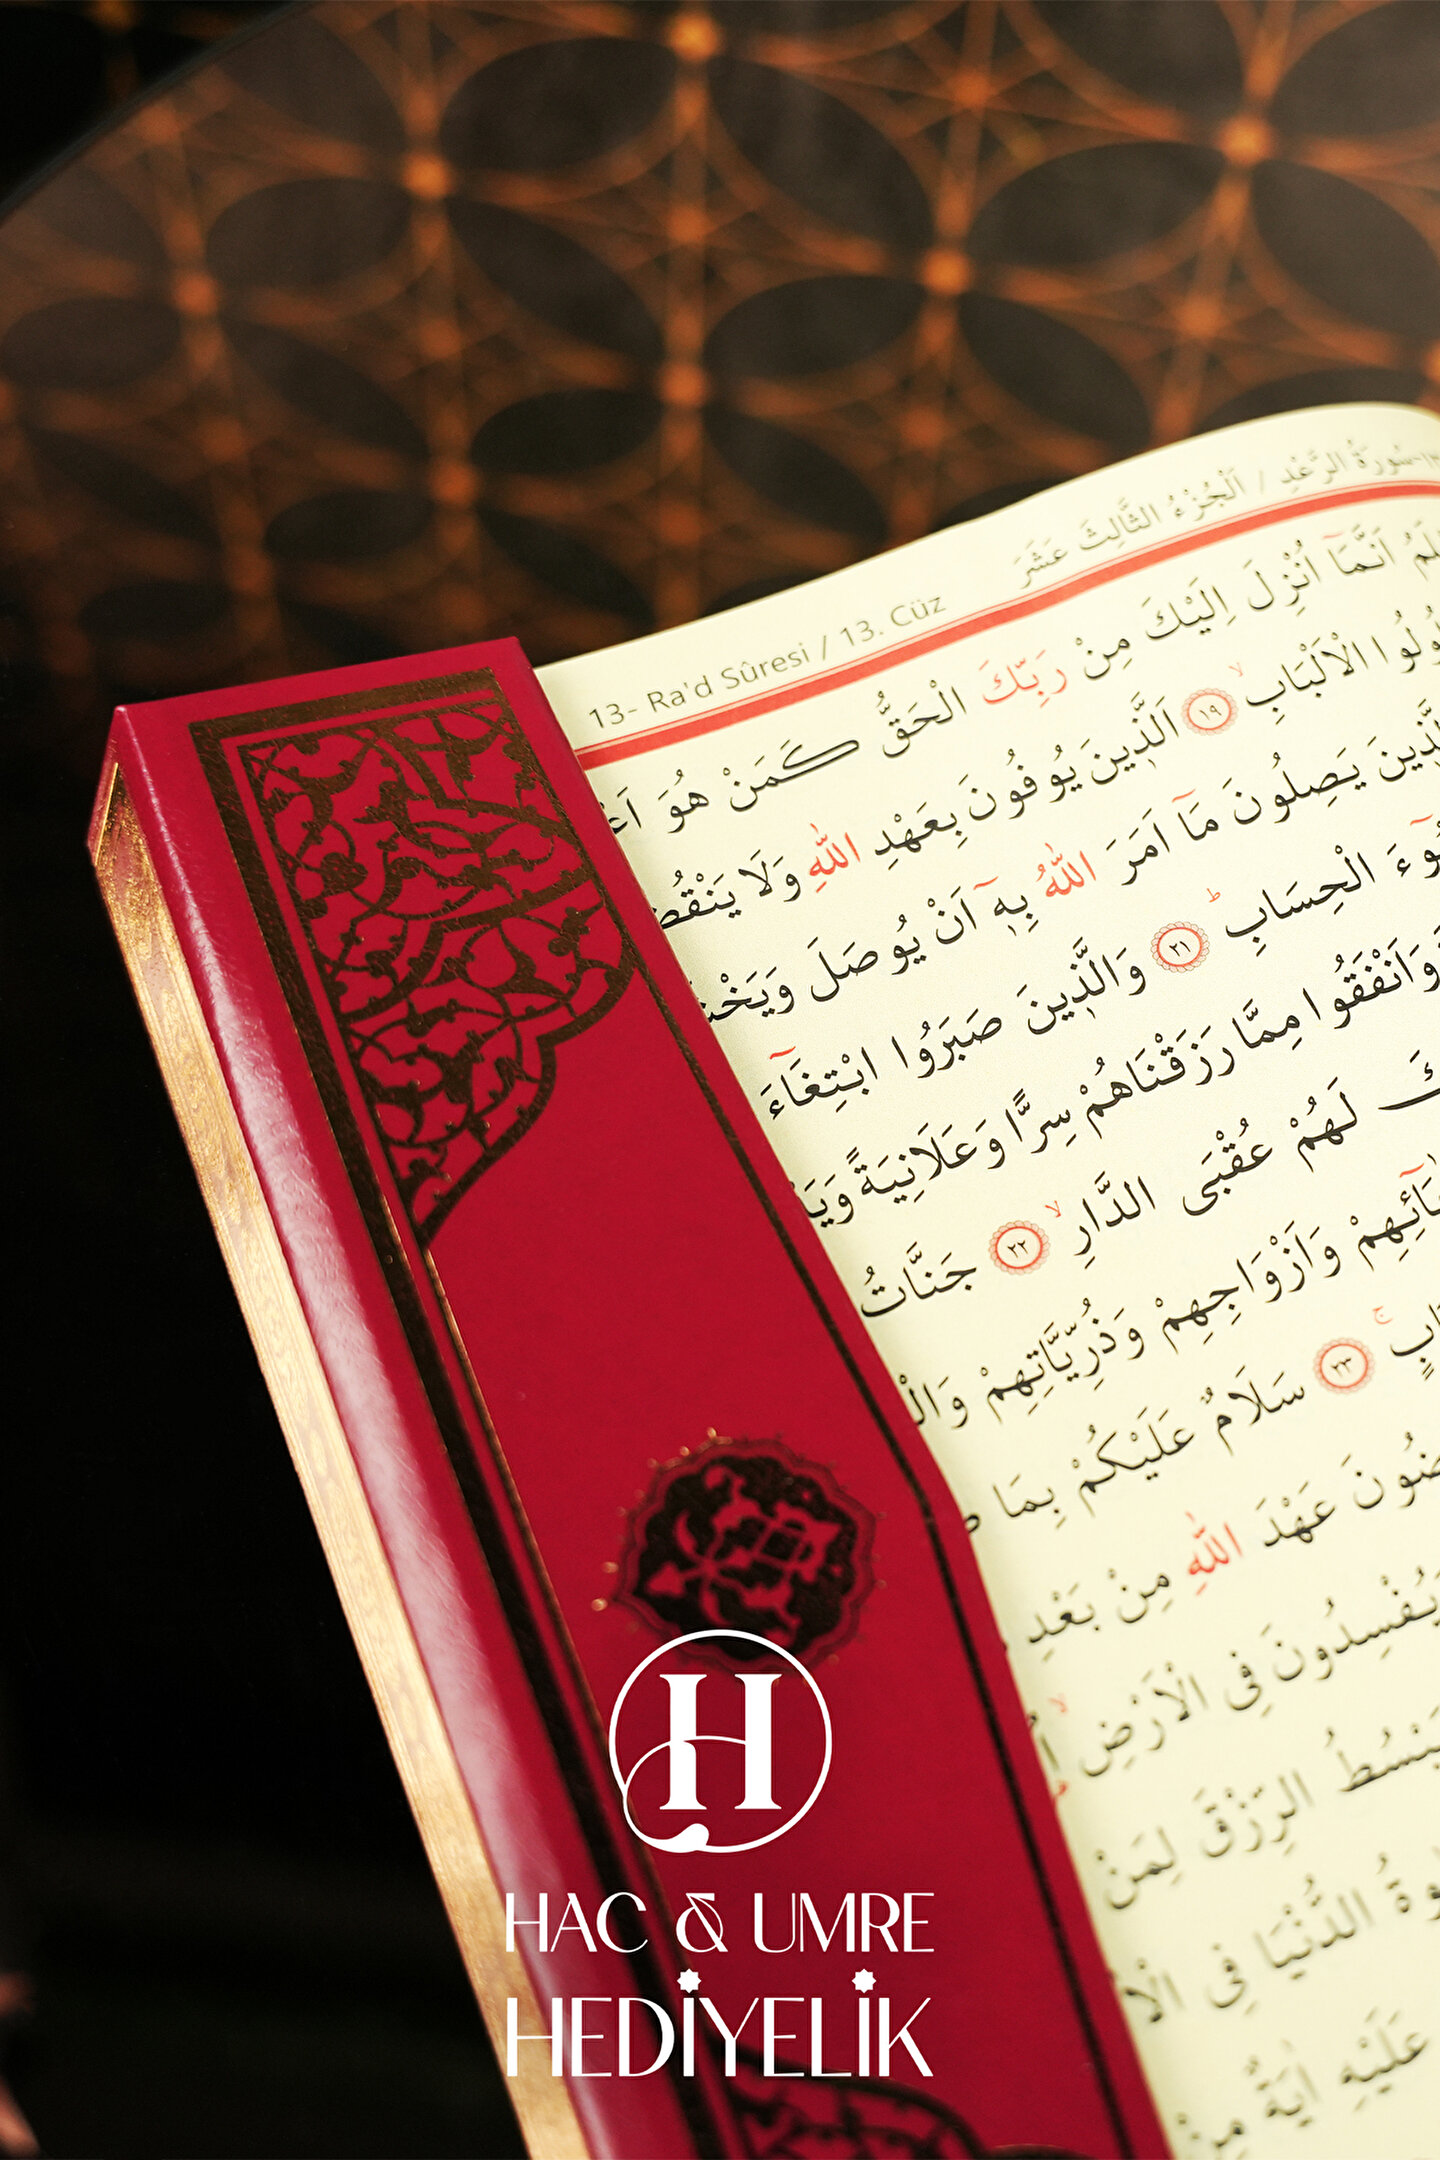 ١٣-سُورَةُ الرَّعْدِ / اَلْجُزْءُ الثَّالِثَ عَشَرَ
13- Ra'd Sûresi / 13. Cüz
اَنَّمَٓا اُنْزِلَ اِلَيْكَ مِنْ رَبِّكَ الْحَقُّ كَمَنْ هُوَ
الْاَلْبَابِۙ ﴿١٩﴾ اَلَّذ۪ينَ يُوفُونَ بِعَهْدِ اللّٰهِ وَلَا
يَصِلُونَ مَٓا اَمَرَ اللّٰهُ بِه۪ٓ اَنْ يُوصَلَ
الْحِسَابِۜ ﴿٢١﴾ وَالَّذ۪ينَ صَبَرُوا ابْتِغَٓاءَ
وَاَنْفَقُوا مِمَّا رَزَقْنَاهُمْ سِرًّا وَعَلَانِيَةً
لَهُمْ عُقْبَى الدَّارِۙ ﴿٢٢﴾ جَنَّاتُ
وَاَزْوَاجِهِمْ وَذُرِّيَّاتِهِمْ
﴿٢٣﴾ سَلَامٌ عَلَيْكُمْ بِمَا
عَهْدَ اللّٰهِ مِنْ بَعْدِ
فِي الْاَرْضِۙ
الرِّزْقَ لِمَنْ
الدُّنْيَا فِي
عَلَيْهِ اٰيَةٌ مِنْ
H
HAC & UMRE
HEDİYELİK